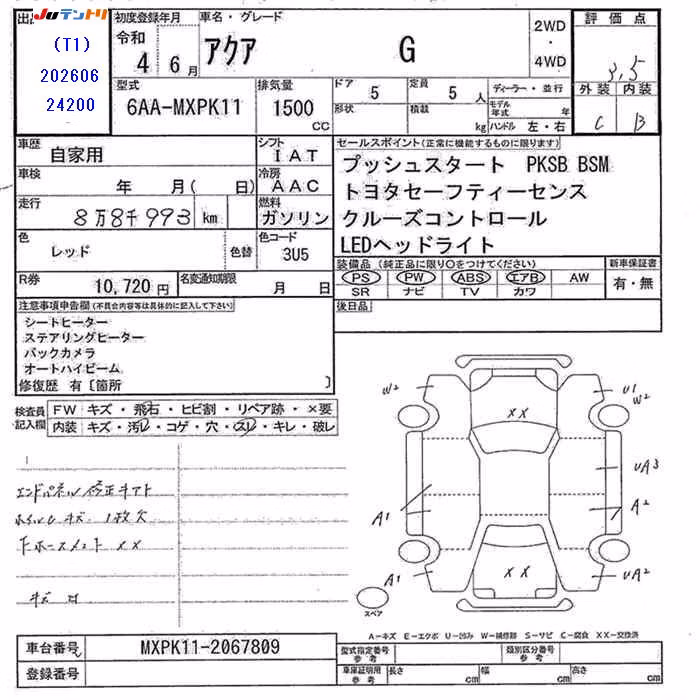 出品
Juテントリ
(T1)
202606
24200
初度登録年月
令和
4 6月
車名・グレード
アクア G
2WD
・
4WD
評価点
3.5
外装 内装
C B
型式
6AA-MXPK11
排気量
1500
CC
ドア
5
定員
5人
形状
積載
kg
ディーラー・並行
モデル年式 年
ハンドル 左・右
車歴
自家用
シフト
IAT
車検
年 月( 日)
冷房
AAC
走行
8万8千993 km
燃料
ガソリン
色
レッド
色替
色コード
3U5
R券
10,720円
名変通知期限
月 日
セールスポイント(正常に機能するものに限ります)
プッシュスタート PKSB BSM
トヨタセーフティーセンス
クルーズコントロール
LEDヘッドライト
装備品 (純正品に限り○をつけてください)
PS PW ABS エアB AW
SR ナビ TV カワ
新車保証書
有・無
後日品
注意事項申告欄(不具合内容等は具体的に記入して下さい)
シートヒーター
ステアリングヒーター
バックカメラ
オートハイビーム
修復歴 有〔箇所 〕
検査員
記入欄
FW キズ・飛石・ヒビ割・リペア跡・×要
内装 キズ・汚レ・コゲ・穴・スレ・キレ・破レ
エンドパネル修正キアト
ホイルCキズ 1枚欠
下ホースメント XX
W2
U1
W2
XX
UA3
A1
A2
A1
XX
UA2
スペア
A-キズ E-エクボ U-凹み W-補修跡 S-サビ C-腐食 XX-交換済
車台番号
MXPK11-2067809
登録番号
型式指定番号
参考
類別区分番号
参考
車庫証明用
参考
長さ cm
幅 cm
高さ cm